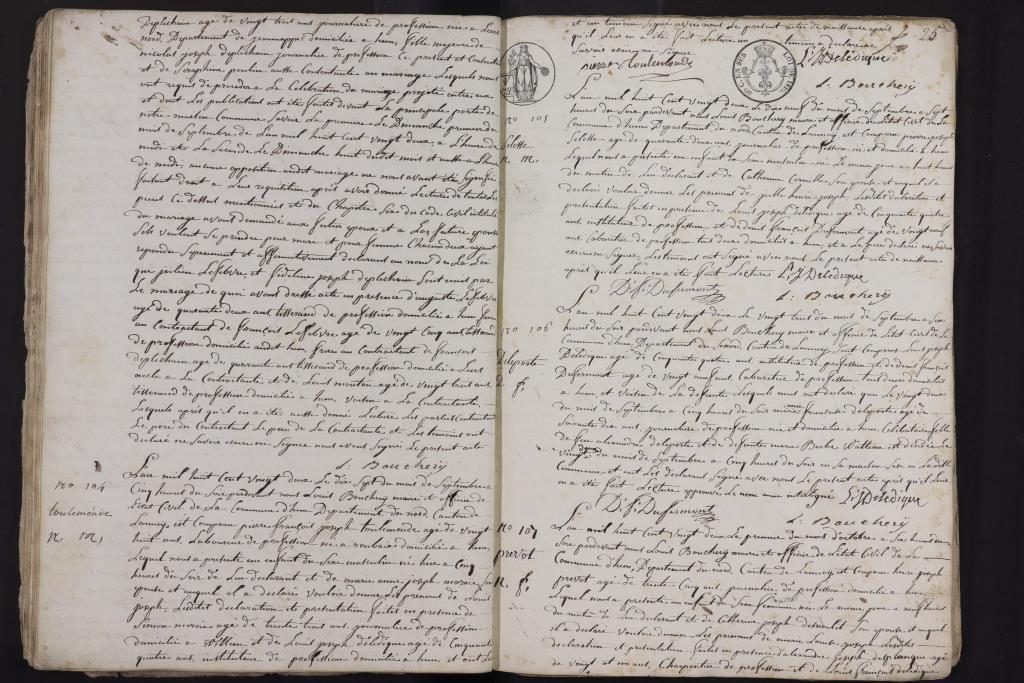 Deplechain age de vingt trois ans journaliere de profession née a Leers
nord, Departement de jemmappe domiciliée a hem, fille majeure de
nicolas joseph Deplechain journalier de profession Ce present et Consentant
et de Seraphine poulin aussi Consentante au mariage Lesquels nous
ont requis de proceder a La Celebration du mariage projeté entre eux
et dont Les publications ont été faites devant La principale porte de
notre maison Commune Savoir La premiere Le Dimanche premier du
mois de Septembre de L'an mil huit Cent vingt deux, a L'heure de
midi et La Seconde Le Dimanche huit dudit mois et aussi a L'heure
de midi, aucune opposition audit mariage ne nous ayant été Signifiée
faisant droit a Leur requisition après avoir donné Lecture de toutes Les
pieces Ci dessus mentionnées et du Chapitre Six du Code Civil intitulé
du mariage avons demandé aux futur epoux et a La future epouse
S'ils veulent Se prendre pour mari et pour femme Chacun deux ayant
repondu Separement et affirmativement declarons au nom de La Loi
que julien Lefebvre, et fideline joseph Deplechain Sont unis par
Le mariage de quoi avons dressé acte en presence d'auguste Lefebvre
agé de quarante deux ans tisserand de profession domicilié a hem frere
au Contractant de françois Lefebvre agé de vingt Cinq ans tisserand
de profession domicilié audit hem, frere au Contractant de françois
Deplechain agé de quarante ans tisserand de profession domicilié a Leers
oncle a La Contractante, et de Louis mouton agé de vingt trois ans
tisserand de profession domicilié a hem, voisin a La Contractante,
Lesquels après qu'il en a été aussi donné Lecture Les parties Contractantes
Le pere du Contractant Le pere de La Contractante et Les temoins ont
declaré ne Savoir ecrire ni Signer nous avons Signé Le present acte
L: Bouchery
no 104
toulemonde
n. m,
L'an mil huit Cent vingt deux Le dix Sept du mois de Septembre a
Cinq heures du Soir pardevant nous Louis Bouchery maire et officier de
L'etat Civil de La Commune d'hem Departement du nord, Canton de
Lannoy, est Comparu pierre françois joseph toulemonde agé de vingt
huit ans, Laboureur de profession né a roubaix domicilié a hem,
Lequel nous a presenté un enfant du Sexe masculin né hier a Cinq
heures du Soir de Lui declarant et de marie anne joseph Son
epouse et auquel il a declaré vouloir donner Les prenoms de Louis
joseph, Lesdites declaration et presentation faites en presence de
Simon agé de trente trois ans, journalier de profession
domicilié a Willem et de Louis joseph delédique agé de Cinquante
quatre ans, instituteur de profession domicilié a hem, et ont Les
25
et un temoins Signé avec nous Le present acte de naissance après
qu'il Leur en a été fait Lecture un temoin a declaré ne
Savoir ecrire ni Signer
L: J Delédique
pierre toulemonde
L: Bouchery
no 105
Selosse
n. m.
L'an mil huit Cent vingt deux Le dix neuf du mois de Septembre a Sept
heures du Soir pardevant nous Louis Bouchery maire et officier de L'etat Civil de La
Commune d'hem Departement du nord, Canton de Lannoy, est Comparu pierre joseph
Selosse agé de quarante deux ans, journalier de profession né et domicilié a hem
Lequel nous a presenté un enfant du Sexe masculin né Le meme jour a huit heures
du matin de Lui declarant et de Catherine Cornille Son epouse et auquel il a
declaré vouloir donner Les prenoms de henri joseph, Lesdites declaration et
presentation faites en presence de Louis joseph delédique agé de Cinquante quatre
ans, instituteur de profession, et de Denis françois Dufermont agé de vingt neuf
ans, Cabaretier de profession tous deux domiciliés a hem, et a Le pere declaré ne Savoir
ecrire ni Signer, Les temoins ont Signé avec nous Le present acte de naissance
après qu'il Leur en a été fait Lecture
L: J Delédique
D: f: Dufermont
L: Bouchery
no 106
Deleporte
D. f.
L'an mil huit Cent vingt deux Le vingt trois du mois de Septembre a Six
heures du Soir pardevant nous Louis Bouchery maire et officier de L'etat Civil de La
Commune d'hem, Departement du nord, Canton de Lannoy, Sont Comparus Louis joseph
Delédique agé de Cinquante quatre ans, instituteur de profession et de Denis françois
Dufermont agé de vingt neuf ans, Cabaretier de profession, tous deux domiciliés
a hem, et voisins de La defunte Lesquels nous ont declaré que Le vingt deux
du mois de Septembre a Cinq heures du Soir marie françoise deleporte agée de
Soixante dix ans, journaliere de profession née et domiciliée a hem, Celibataire fille
de feu alexandre deleporte et de defunte marie Barbe Watteau est décédée Le
vingt deux du mois de Septembre a Cinq heures du Soir en Sa maison Sise en Ladite
Commune et ont Les declarants Signé avec nous Le present acte après qu'il Leur
en a été fait Lecture approuvé Le nom anne interligné
L: J Delédique
D: f: Dufermont
L: Bouchery
no 107
prevot
n. f.
L'an mil huit Cent vingt deux Le premier du mois d'octobre a Six heures du
Soir pardevant nous Louis Bouchery maire et officier de L'etat Civil de La
Commune d'hem, Departement du nord, Canton de Lannoy est Comparu henri joseph
prevot agé de trente Cinq ans, journalier de profession domicilié a hem
Lequel nous a presenté un enfant du Sexe feminin née Le meme jour a neuf heures
du matin de Lui declarant et de Catherine joseph Son epouse et auquel
il a declaré vouloir donner Les prenoms de marie Louise joseph Lesdites
declaration et presentation faites en presence d'alexandre joseph desplanque agé
de vingt et un ans, Charpentier de profession et de Louis françois delédique